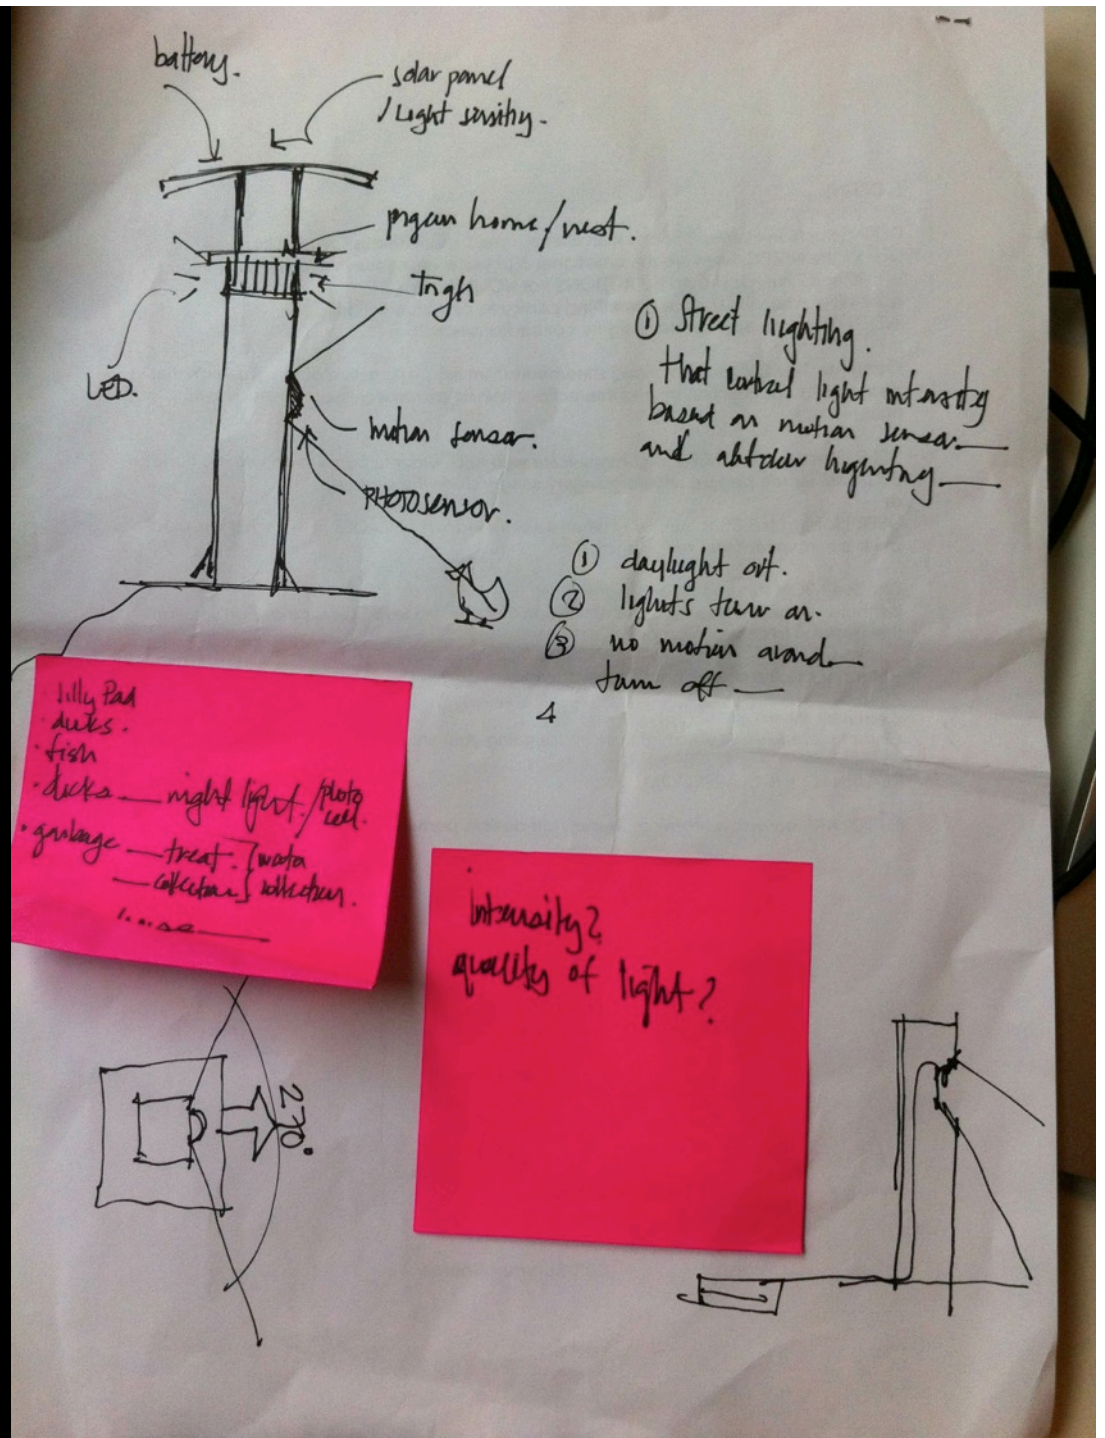 battery.
solar panel
/ Light sensitiy.
home/nest.
LED.
motion sensor.
PHOTOSENSOR.
① Street lighting.
that control light intensity
based on motion sensor
and lighting
① daylight out.
② lights turn on.
③ no motion around
turn off
4
lilly Pad
· ducks.
· fish
· ducks — night light / photo
cell.
· garbage — treat.
— collection } collection.
Intensity?
quality of light?
270°